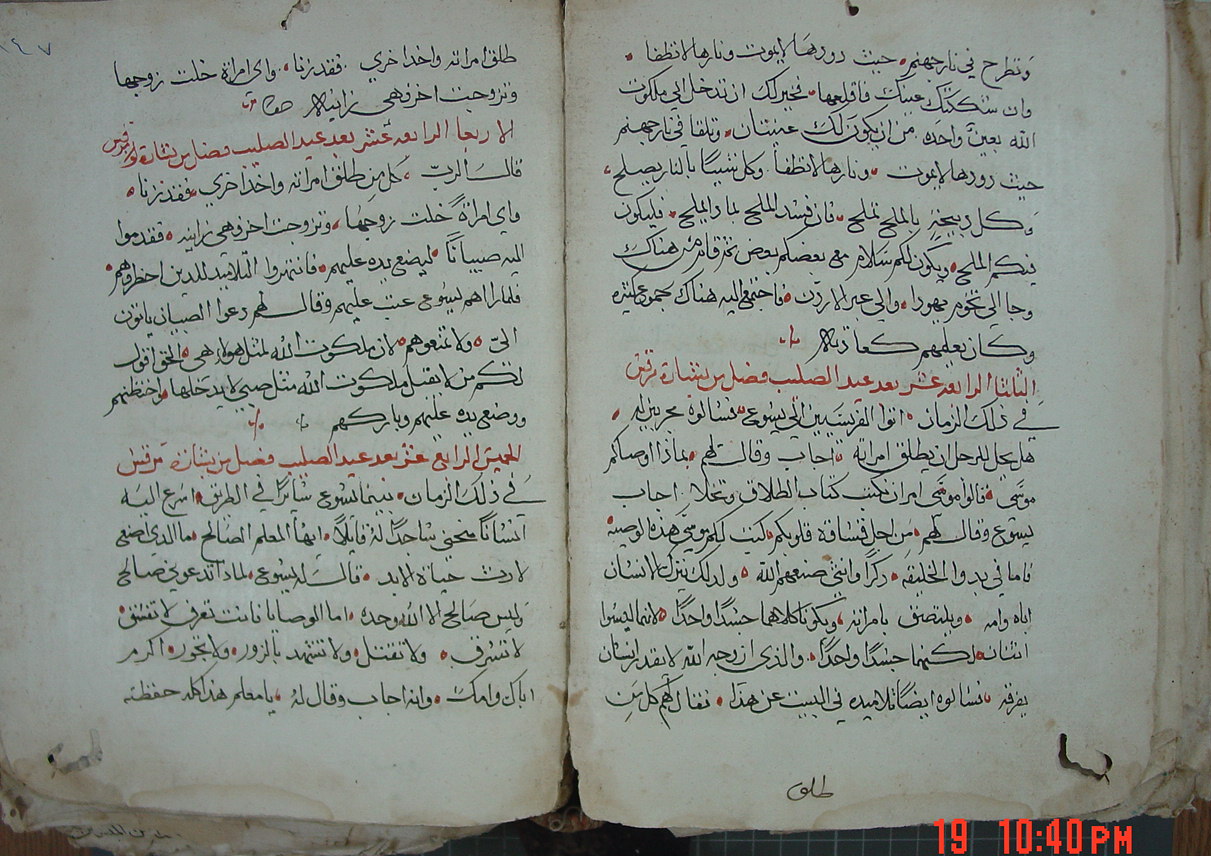 وتطرح في نار جهنم • حيث دودها لا يموت ونارها لا تطفا •
وان شككتك عينك فاقلعها • فخير لك ان تدخل الى ملكوت
الله بعين واحده • من ان يكون لك عينتان • وتلقا في نار جهنم
حيث دودها لا يموت • ونارها لا تطفأ • وكل شيئا بالنار يصلح •
وكل دبيحة بالملح تملح • فان فسد الملح لما دا يملح • فليكون
فيكم الملح • ويكون لكم سلام مع بعضكم بعض تم قام من هناك
وجا الي تخوم يهودا • والي عبر الاردن • فاجتمع اليه هناك جموع كتيره
وكان يعلمهم كعادته
التلتا الرابعه عشر بعد عيد الصليب فصل من بشارة مرقس
في ذلك الزمان • اتوا الفريسيين الي يسوع • فسالوه مجربين له •
هل يحل للرجل ان يطلق امراته • اجاب وقال لهم • بماذا اوصاكم
موسى • قالوا موسى امر ان نكتب كتاب الطلاق وتخلا • اجاب
يسوع وقال لهم • من اجل قساوة قلوبكم • كتب لكم موسى هذه الوصيه
فاما في بدوا الخليقه • ذكرا وانثي صنعهم الله • ولدلك يترك الانسان
اباه وامه • ويلتصق بامراته • ويكونا كلاهما جسدا واحدا • لانهما ليسوا
اتنان • لكنهما جسدا واحدا • والذي ازوجه الله لا يقدر انسان
يفرقه • فسالوه ايضا تلاميده في البيت عن هذا • فقال لهم كل من
طلق
١٤٧
طلق امراته واخد اخري • فقد زنا • واي امراة خلت زوجها
وتزوجت اخر فهي زانيه
الاربعا الرابعه عشر بعد عيد الصليب فصل من بشارة مرقس
قال الرب • كل من طلق امراته واخد اخري • فقد زنا •
واي امراة خلت زوجها • وتزوجت اخر فهي زانيه • فقدموا
اليه صبيانا • ليضع يده عليهم • فانتهروا التلاميد للدين احضروهم •
فلما راهم يسوع عتب عليهم وقال لهم دعوا الصبيان ياتون
الي • ولا تمنعوهم • لان ملكوت الله لمثل هولا هي • الحق اقول
لكم من لا يقبل ملكوت الله مثل صبي لا يدخلها • واحتظنهم
ووضع يده عليهم وباركهم
الخميس الرابع عشر بعد عيد الصليب فصل من بشارة مرقس
في ذلك الزمان • بينما يسوع سائرا في الطريق • اسرع اليه
انسانا منحني ساجدا له قايلا • ايها المعلم الصالح • ما الذي اصنع
لارث حياة الابد • قال له يسوع • لماذا تدعوني صالح
وليس صالح الا الله وحده • اما الوصايا فانت تعرف لا تفسق •
لا تسرق • ولا تقتل • ولا تشهد بالزور • ولا تجور • اكرم
اباك وامك • وانه اجاب وقال له • يا معلم هذا كله حفظته